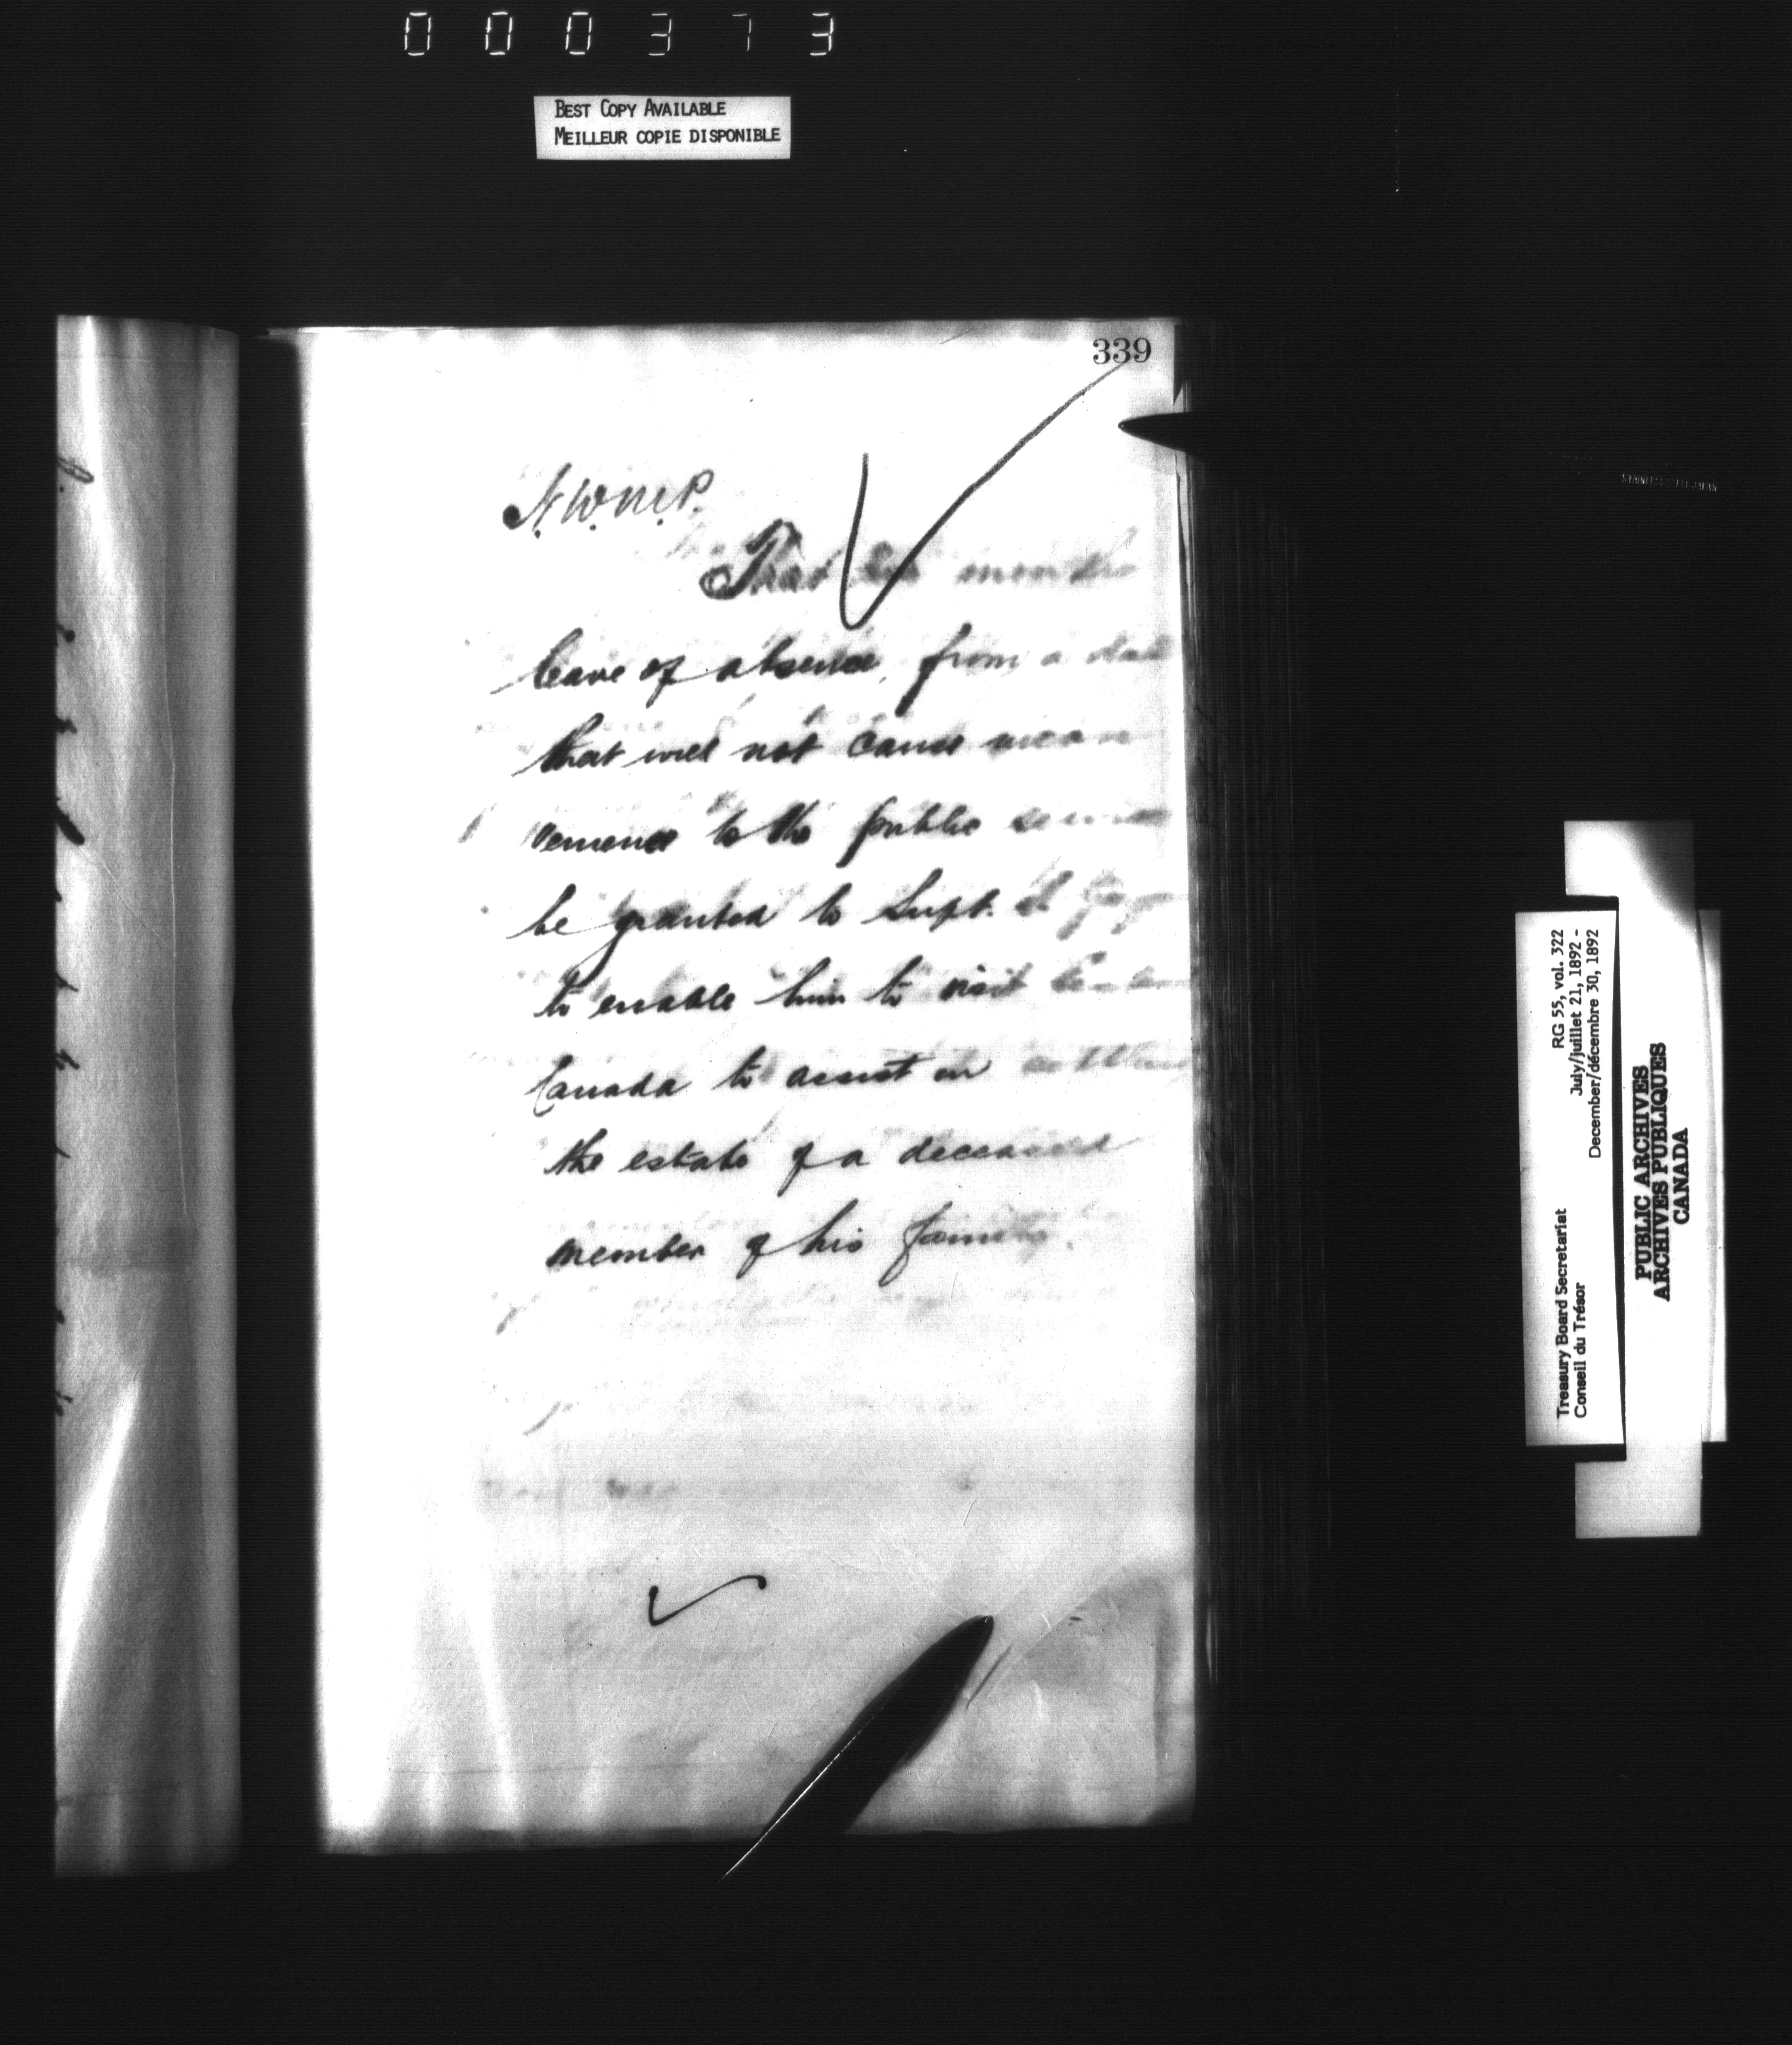 000373
BEST COPY AVAILABLE
MEILLEUR COPIE DISPONIBLE
339
N.W.M.P.
That months
leave of absence, from a date
that will not cause incon
venience to the public service
be granted to Supt.
to enable him to visit Eastern
Canada to assist in settling
the estate of a deceased
member of his family.
RG 55, vol. 322
July/juillet 21, 1892 -
December/décembre 30, 1892
Treasury Board Secretariat
Conseil du Trésor
PUBLIC ARCHIVES
ARCHIVES PUBLIQUES
CANADA